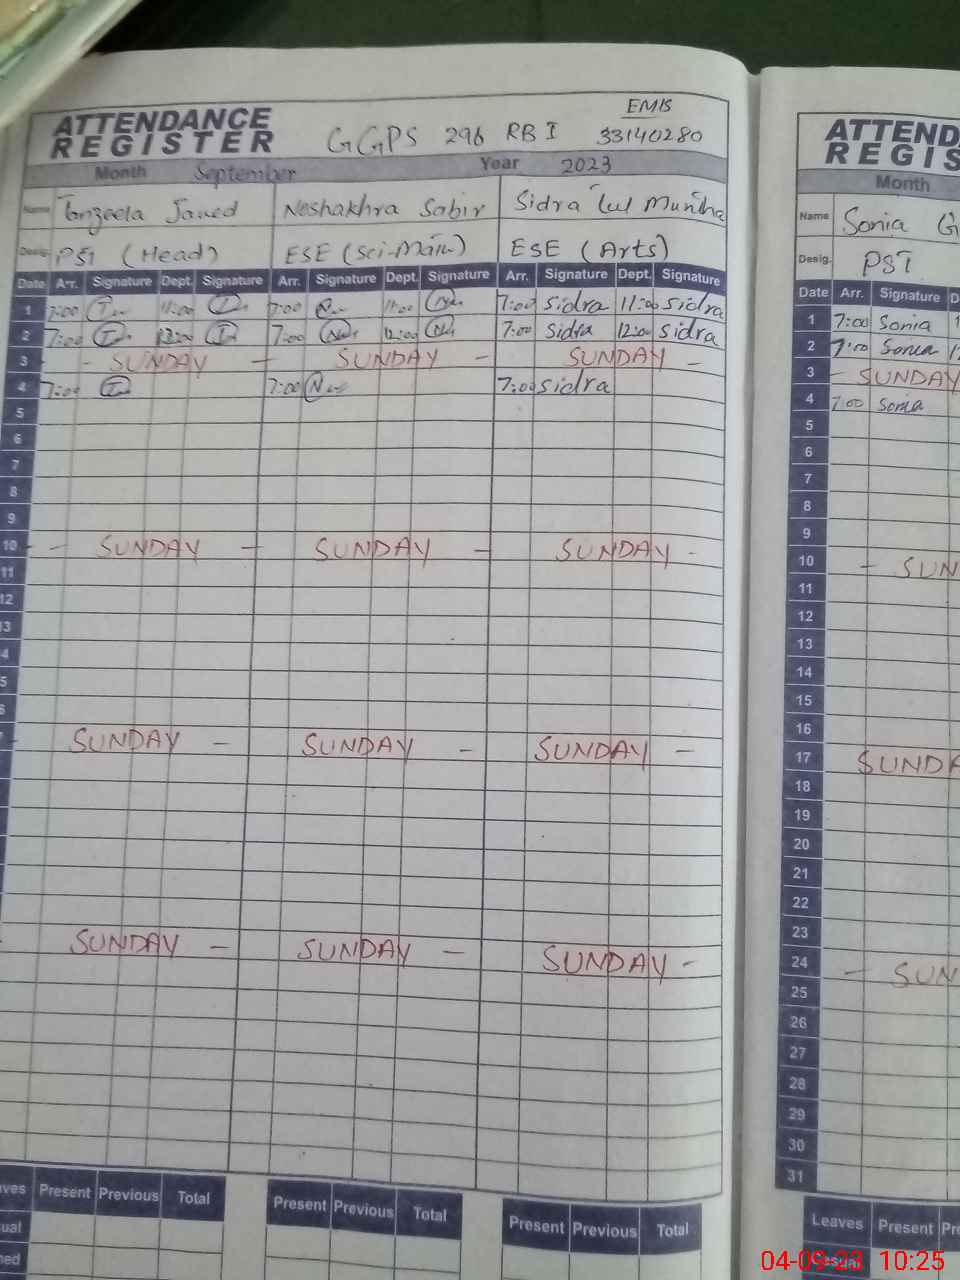 ATTENDANCE REGISTER GGPS 296 RB I EMIS 33140280
Month September Year 2023
Name Tanzeela Javed Noshakhra Sabir Sidra tul Muntha
Desig. PST (Head) ESE (Sci-Math) ESE (Arts)
Date Arr. Signature Dept. Signature Arr. Signature Dept. Signature Arr. Signature Dept. Signature
1 7:00 11:00 7:00 11:00 7:00 Sidra 11:00 Sidra
2 7:00 12:00 7:00 12:00 7:00 Sidra 12:00 Sidra
3 - SUNDAY - SUNDAY - SUNDAY -
4 7:00 7:00 7:00 Sidra
5
6
7
8
9
10 - SUNDAY - SUNDAY - SUNDAY -
11
12
SUNDAY - SUNDAY - SUNDAY -
SUNDAY - SUNDAY - SUNDAY -
Present Previous Total Present Previous Total Present Previous Total
Month
Name Sonia
Desig. PST
Date Arr. Signature
1 7:00 Sonia
2 7:00 Sonia
3 - SUNDAY
4 7:00 Sonia
5
6
7
8
9
10 - SUN
11
12
13
14
15
16
17 SUNDA
18
19
20
21
22
23
24 - SUN
25
26
27
28
29
30
31
Leaves Present
04-09-23 10:25